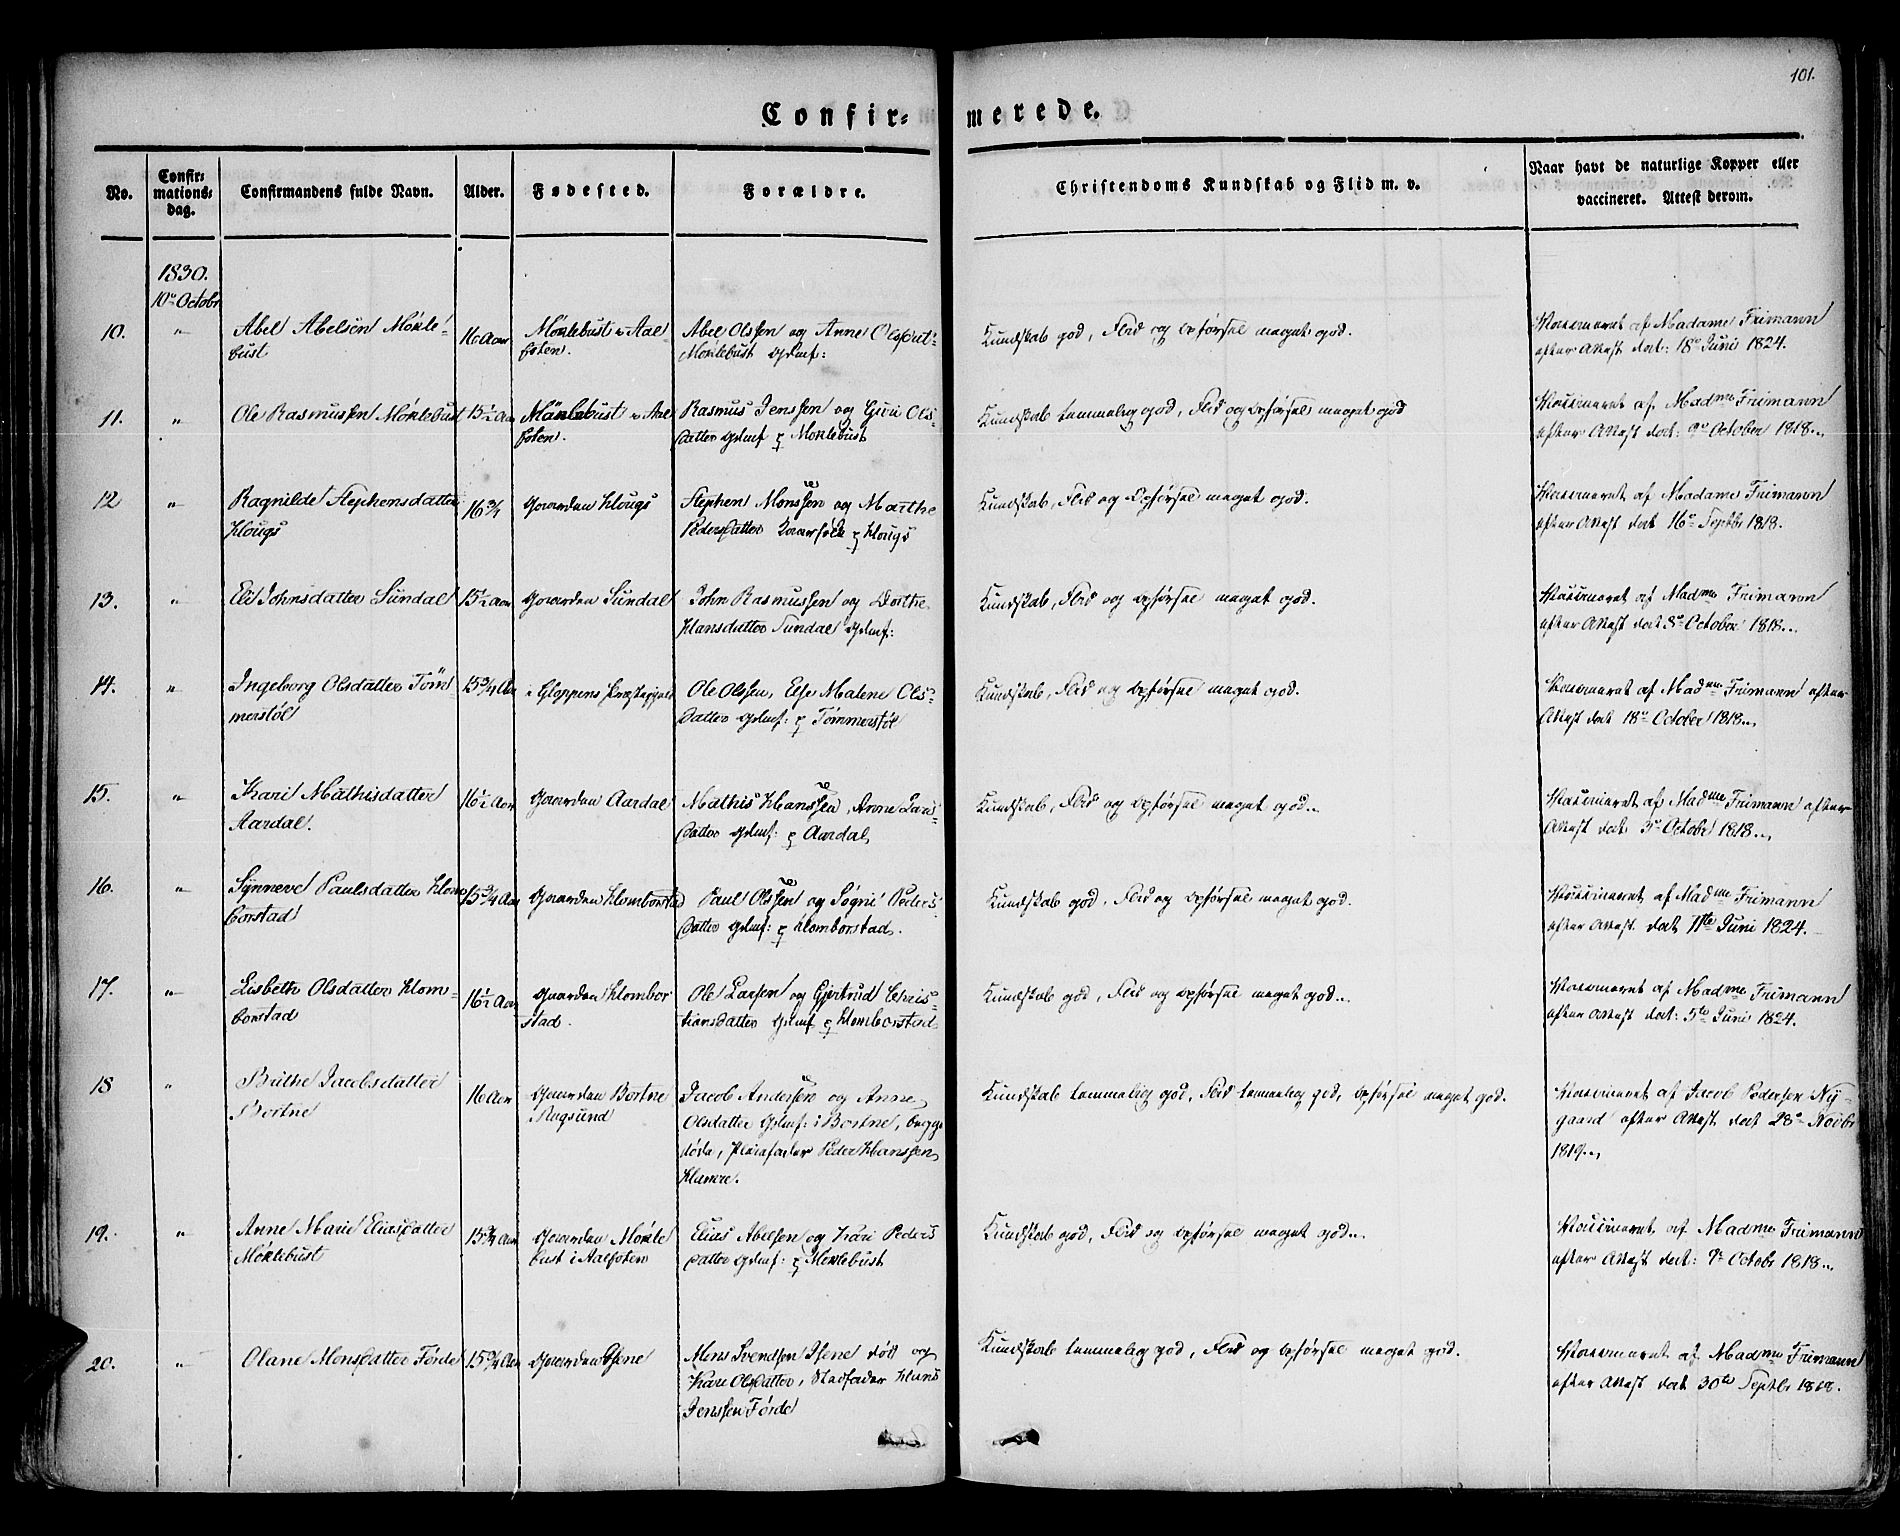 101.
Confir= merede.
No.
Confir=
mations=
dag.
Confirmandens fulde Navn.
Alder.
Fødested.
Forældre.
Christendoms Kundskab og Flid m. v.
Naar havt de naturlige Kopper eller
vaccineret. Attest derom.
1830.
10de Octobr
10.
"
Abel Abelsen Møkle=
bust
16 Aar
Møklebust i Aal=
foten.
Abel Olssen og Anne Olsdat:
Møklebust
Kundskab god, Flid og Opførsel meget god.
Vaccineret af Madame Frimann
efter Attest dat: 18de Juni 1824.
11.
"
Ole Rasmussen Møklebust
15½ Aar
Møklebust i Aal
foten.
Rasmus Jenssen og Guri Ols=
datter Møklebust
Kundskab temmelig god, Flid og Opførsel meget god
Vaccineret af Madme Frimann
efter Attest dat: 9de October 1818.
12
"
Ragnilde Stephensdatter
Hougs
16¾
Gaarden Hougs
Stephen Monssen og Marthe
Pedersdatter Hougs
Kundskab, Flid og Opførsel meget god.
Vaccineret af Madame Frimann
efter Attest dat 16de Septbr 1818.
13.
"
Eli Johnsdatter Sundal
15½ Aar
Gaarden Sundal
John Rasmussen og Dorthe
Hansdatter Sundal
Kundskab, Flid og Opførsel meget god.
Vaccineret af Madme Frimann
efter Attest dat 3de October 1818.
14.
"
Ingeborg Olsdatter Töm
merstöl
15¾ Aar
i Gloppens Præstegjeld
Ole Olssen, Else Malene Ols=
datter Tømmerstöl
Kundskab, Flid og Opførsel meget god.
Vaccineret af Madme Frimann efter
Attest dat 18de October 1818.
15.
"
Kari Mathisdatter
Aardal.
16½ Aar
Gaarden Aardal
Mathis Hanssen, Anne Lars=
datter Aardal
Kundskab, Flid og Opførsel meget god.
Vaccineret af Madme Frimann efter
Attest dat. 3de October 1818.
16.
"
Synneve Paulsdatter Hom
borstad
15¾ Aar
Gaarden Homborstad
Paul Olssen og Søgni Peders
datter Homborstad.
Kundskab god, Flid og Opførsel meget god.
Vaccineret af Madme Frimann
efter Attest dat 11te Juni 1824.
17.
"
Lisbeth Olsdatter Hom=
borstad
16½ Aar
Gaarden Hombor
stad.
Ole Larsen og Gjertrud Chris=
tiansdatter Homborstad
Kundskab god, Flid og Opførsel meget god.
Vaccineret af Madme Frimann
efter Attest dat: 5te Juni 1824.
18
"
Brithe Jacobsdatter
Bortne
16 Aar
Gaarden Bortne
Rugsund
Jacob Andersen og Anne
Olsdatter i Bortne, begge
døde, Pleiefader Peder Hanssen
Kundskab temmelig god, Flid temmelig god, Opførsel meget god.
Vaccineret af Jacob Pedersen Ny=
gaard efter Attest dat 28de Novbr
1819.
19.
"
Anne Marie Eliasdatter
Møklebust
15¾ Aar
Gaarden Møkle
bust i Aalfoten
Elias Abelsen og Kari Peders
datter Møklebust
Kundskab god, Flid og Opførsel meget god.
Vaccineret af Madme Frimann
efter Attest dat: 9de Octobr 1818.
20.
"
Olane Monsdatter Førde
15¾ Aar
Gaarden Isene
Mons Svendsen Isene død og
Kari Olsdatter, Stedfader Hans
Jenssen Førde
Kundskab temmelig god, Flid og Opførsel meget god.
Vaccineret af Madme Frimann
efter Attest dat 30te Septbr 1818.